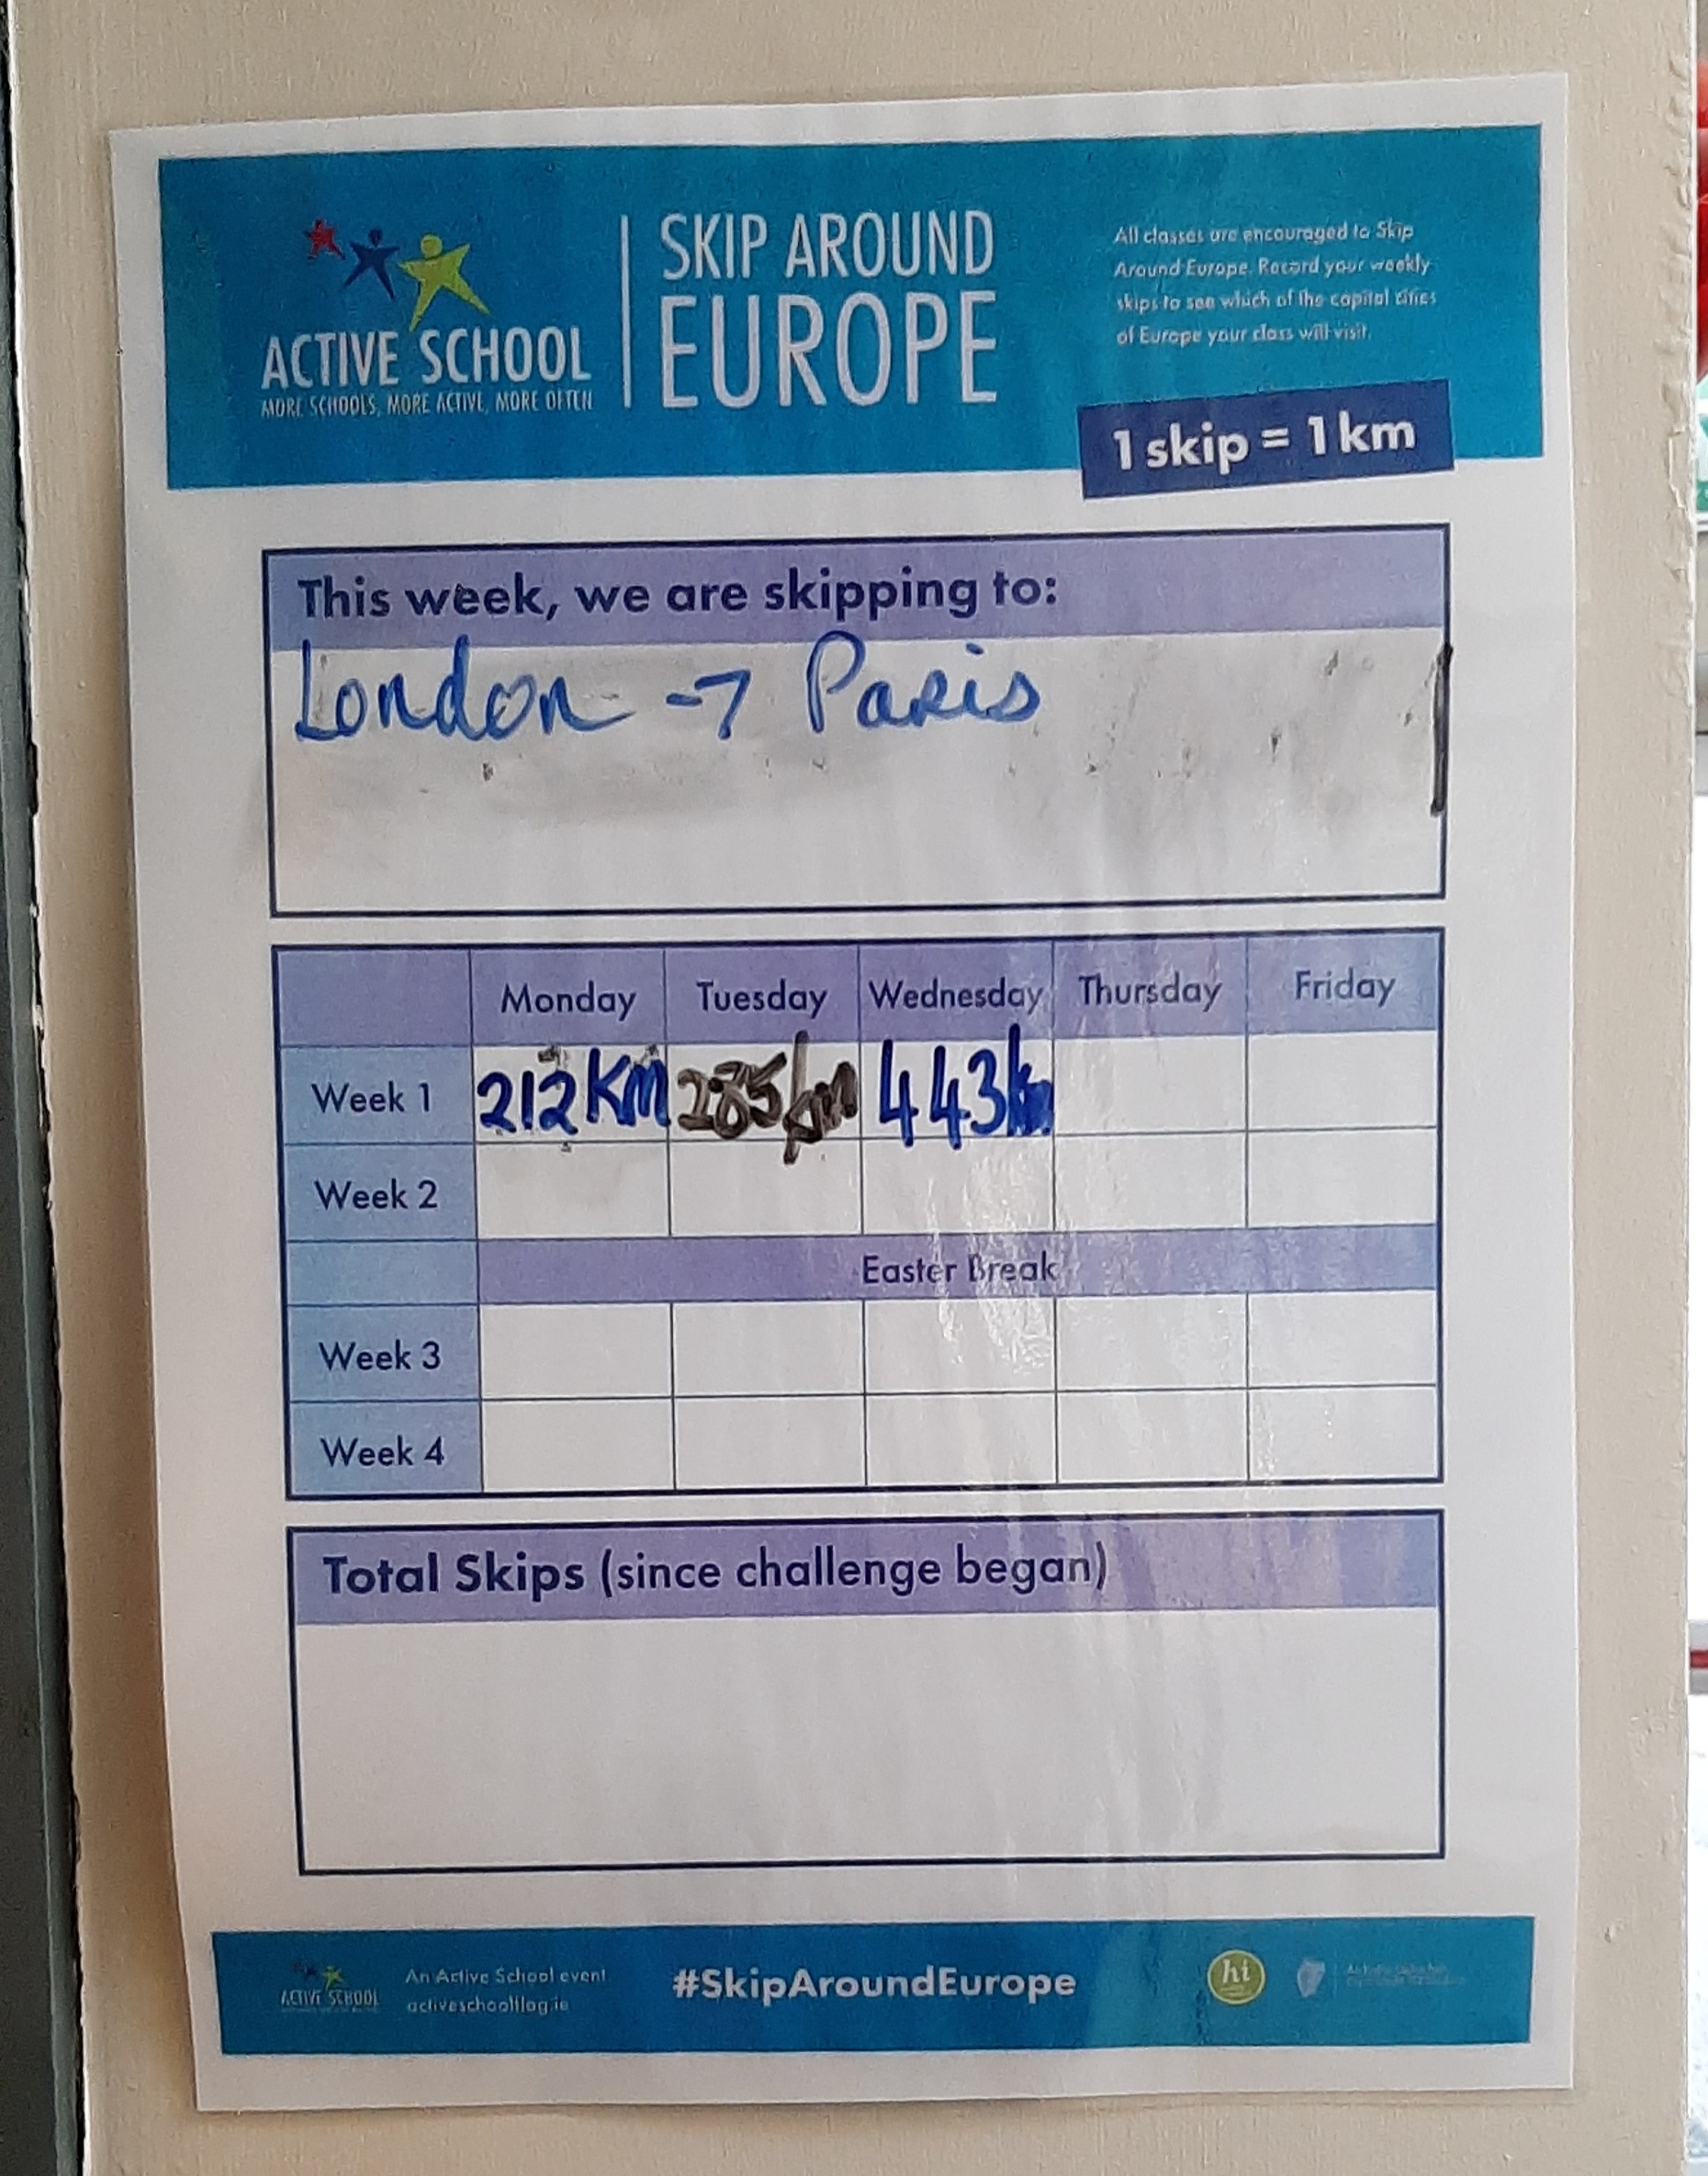 ACTIVE SCHOOL
MORE SCHOOLS, MORE ACTIVE, MORE OFTEN
SKIP AROUND
EUROPE
All classes are encouraged to Skip
Around Europe. Record your weekly
skips to see which of the capital cities
of Europe your class will visit.
1 skip = 1 km
This week, we are skipping to:
London → Paris
Monday Tuesday Wednesday Thursday Friday
Week 1 212 Km 285 km 443 km
Week 2
Easter Break
Week 3
Week 4
Total Skips (since challenge began)
ACTIVE SCHOOL
An Active School event
activeschoolflag.ie
#SkipAroundEurope
hi